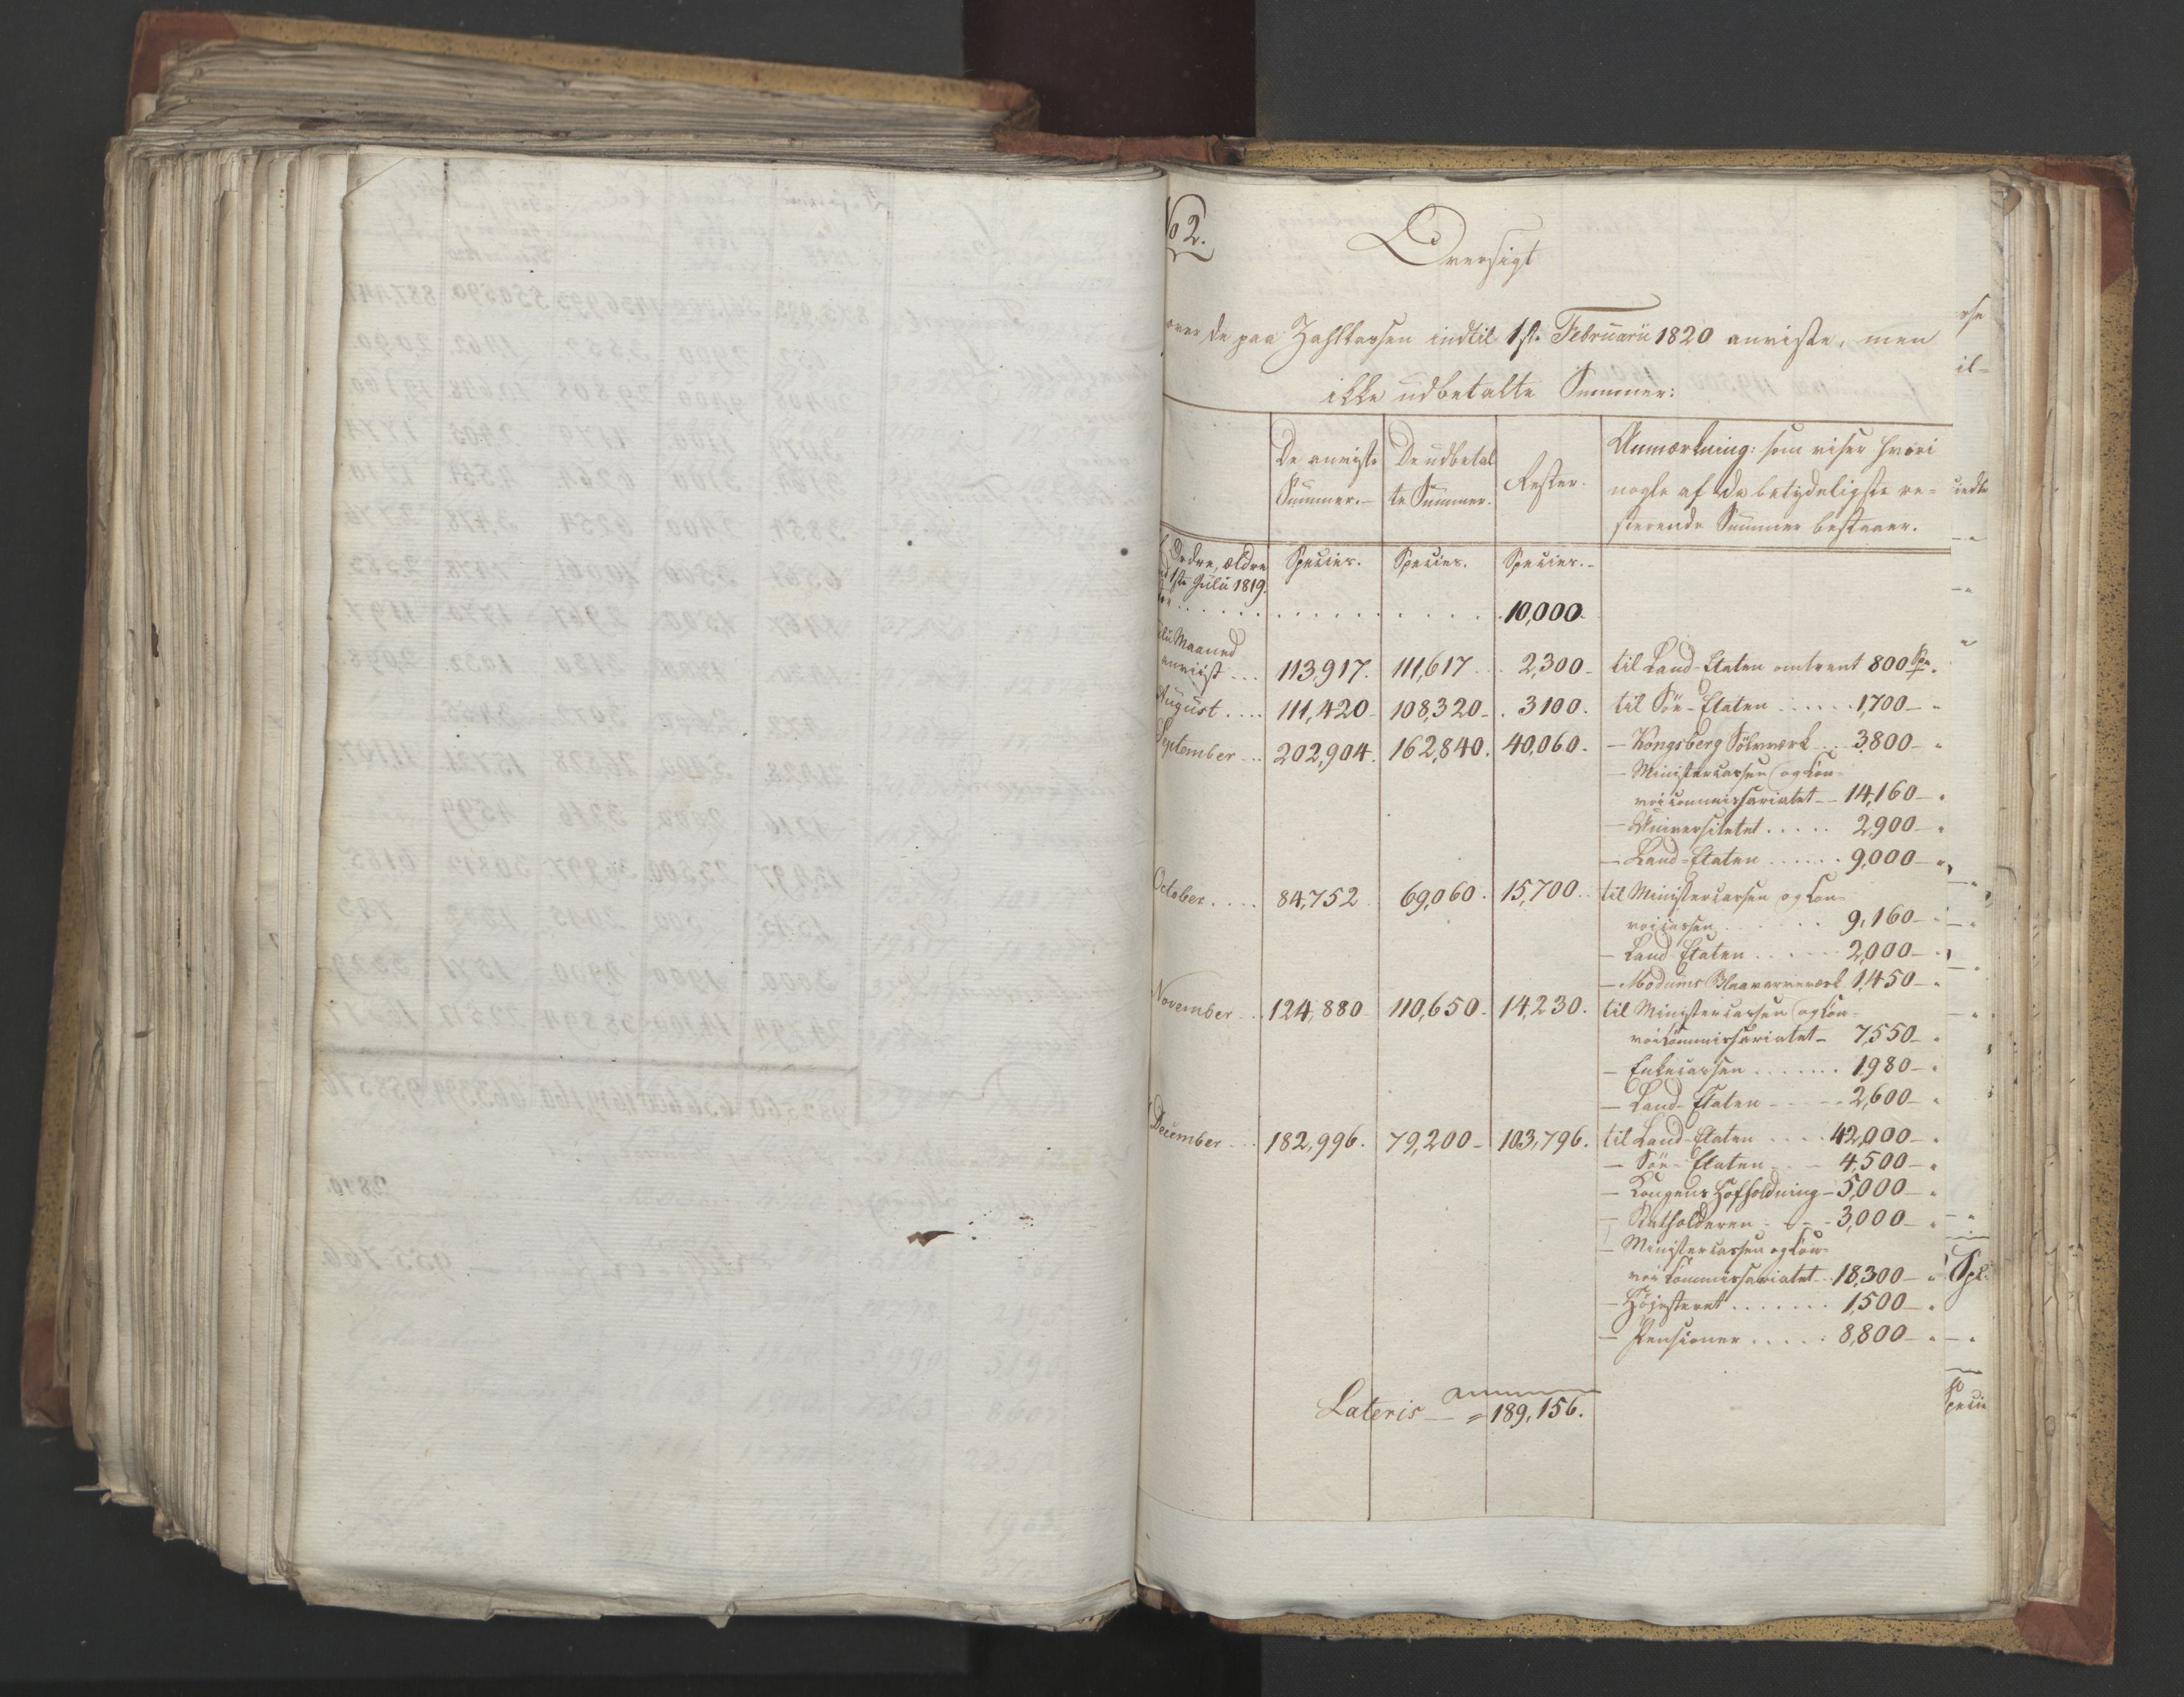 No 2.
Oversigt
over de paa Zahlkassen indtil 1ste Februarii 1820 anviste, men
ikke udbetalte Summer:
De anviste De udbetal Rester. Anmærkning: som viser hvori
Summer.— te Summer. nogle af de betydeligste re-
sterende Summer bestaaer.
Ordre, ældre Species. Species. Species.-
end 1ste Julii 1819.
. . . . . . . . . . . 10,000.
Julii Maaned
anviist ... 113,917. 111,617. 2,300. til Land-Etaten omtrent 800 Spe.
August .... 111,420. 108,320. 3100. til Søe-Etaten ..... 1,700 — "
September ... 202,904. 162,840. 40,060. — Kongsberg Sölvværk ... 3800 — "
— Ministercassen og Con-
voicommissariatet — 14,160 — "
— Universitetet ..... 2,900 — "
— Land-Etaten ...... 9,000 — "
October .... 84,752 69,060. 15,700. til Ministercassen og Con-
voicassen ...... 9,160 — "
— Land-Etaten ..... 2,000 — "
— Modums Blaavarveværk 1,450 — "
November .. 124,880 110,650. 14,230. til Ministercassen og Con-
voicommissariatet — 7,550 — "
— Enkecassen ....... 1,980 — "
— Land-Etaten ----- 2,600 — "
December ... 182,996. 79,200 - 103,796. til Land-Etaten .... 42,000 — "
— Søe-Etaten - - 4,500 — "
— Kongens Hofholdning - 5,000 — "
— Statholderen - - - 3,000 — "
— Ministercassen og Con-
voicommissariatet .. 18,300 — "
— Høiesteret ....... 1,500 — "
— Pensioner ..... 8,800 — "
Lateris — = 189,156.